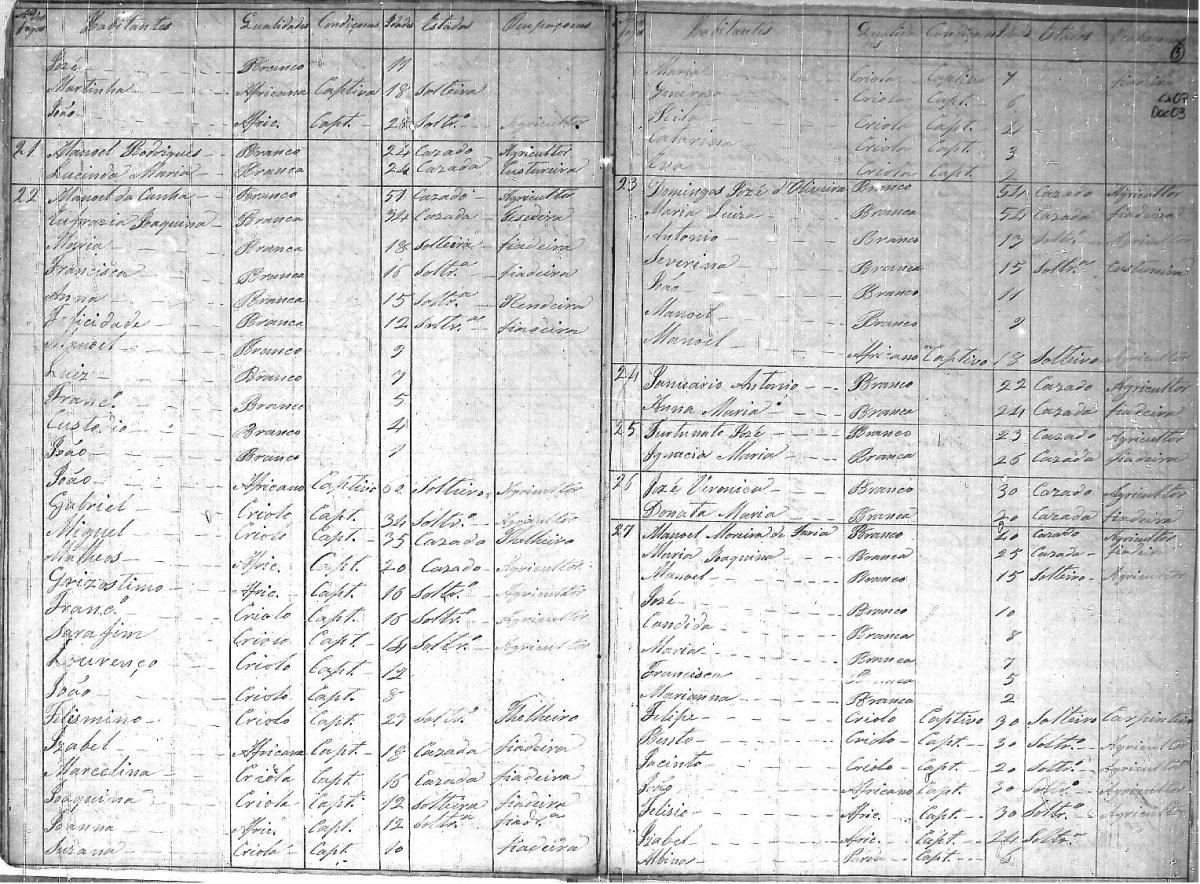 Habitantes Qualidades Condiçoens Idades Estado Ocupaçoens
Jozé Branco 11
Martinha Africana Captiva 18 Solteira
João Afric. Capt. 28 Soltr.º Agricultor
21 Manoel Rodrigues Branco 24 Cazado Agricultor
Lucinda Maria Branca 24 Cazada Custureira
22 Manoel da Cunha Branco 51 Cazado Agricultor
Eufrazia Joaquina Branca 34 Cazada Tecedeira
Maria Branca 18 Solteira fiadeira
Francisca Branca 16 Soltr.ª fiadeira
Anna Branca 15 Soltr.ª Rendeira
Felicidade Branca 12 Soltr.ª fiadeira
Manoel Branco 9
Luiz Branco 7
Franc.º Branco 5
Custodio Branco 4
João Branco 1
João Africano Captivo Solteiro Agricultor
Gabriel Criolo Capt. 34 Soltr.º Agricultor
Miguel Criolo Capt. 35 Cazado
Matheos Afric. Capt. 20 Cazado Agricultor
Grizostimo Afric. Capt. 16 Soltr.º Agricultor
Franc.º Criolo Capt. 16 Soltr.º Agricultor
Sarafim Criolo Capt. 14 Soltr.º Agricultor
Lourenço Criolo Capt. 12
João Criolo Capt. 8
Felismino Criolo Capt. 23 Soltr.º
Izabel Africana Capt. 18 Cazada fiadeira
Marcelina Criola Capt. 16 Cazada fiadeira
Joaquina Criola Capt. 12 Solteira fiadeira
Joanna Afric. Capt. 12 Soltr.ª fiadr.ª
Suzana Criola Capt. 10 fiadeira
Habitantes Qualidades Condiçoens Estados
Maria Criola Captiva 7 fiadeira
Criola Capt. 6
Rita Criola Capt. 4
Catarina Criola Capt. 3
Eva Criola Capt.
23 Domingos Jozé d'Oliveira Branco 54 Cazado Agricultor
Maria Luiza Branca 54 Cazada fiadeira
Antonio Branco 17 Soltr.º Agricultor
Severina Branca 15 Soltr.ª Custureira
João Branco 11
Manoel Branco 9
Manoel Africano Captivo 18 Solteiro Agricultor
24 Antonio Branco 22 Cazado Agricultor
Anna Maria Branca 24 Cazada fiadeira
25 Furtunato Jozé Branco 23 Cazado Agricultor
Ignacia Maria Branca 26 Cazada fiadeira
26 Jozé Veronica Branco 30 Cazado Agricultor
Donata Maria Branca 20 Cazada fiadeira
27 Manoel Moreira de Faria Branco Cazado Agricultor
Maria Joaquina Branca 25 Cazada fiadeira
Manoel Branco 15 Solteiro Agricultor
Jozé Branco 10
Candida Branca 8
Maria Branca 7
Francisca Branca 5
Marianna Branca 2
Felipe Criolo Captivo 30 Solteiro Carpinteiro
Bento Criolo Capt. 30 Soltr.º Agricultor
Jacinto Criolo Capt. 20 Soltr.º Agricultor
João Africano Capt. 30 Soltr.º Agricultor
Felisio Afric. Capt. 30 Soltr.º Agricultor
Izabel Afric. Capt. 24 Soltr.ª
Albino Capt.